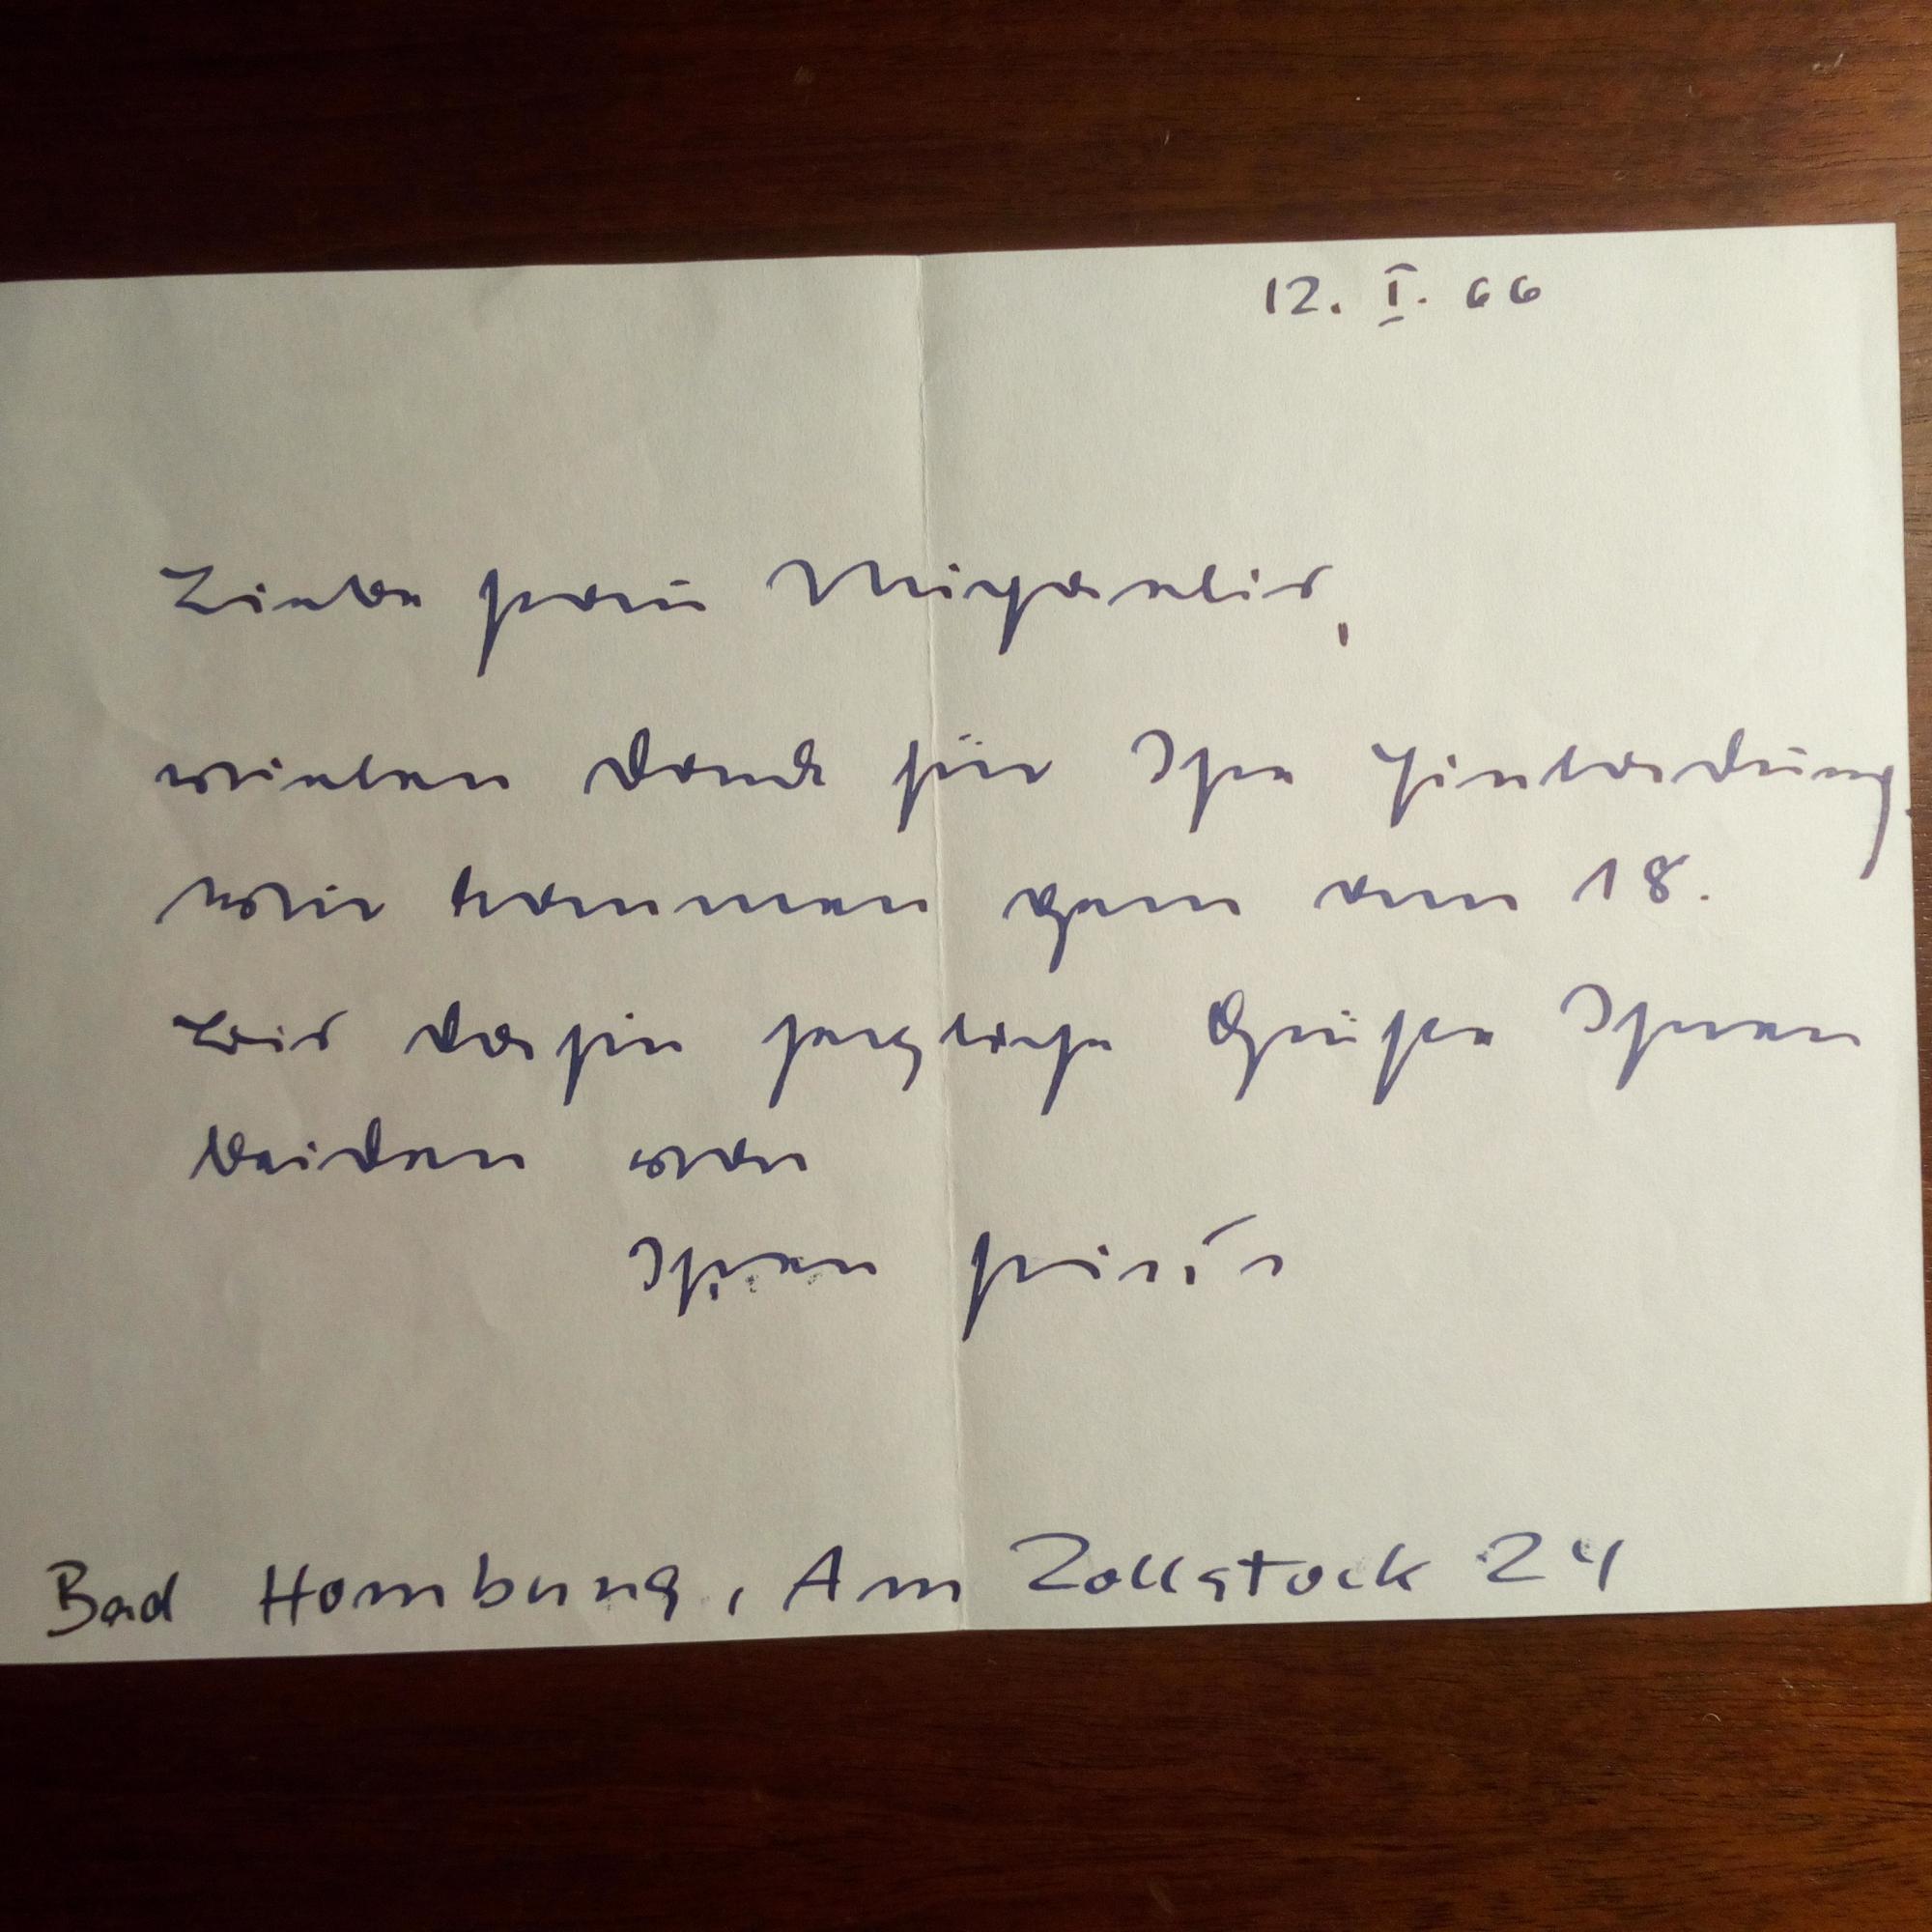 12. I. 66
Liebe Frau Michaelis,
vielen Dank für Ihre Einladung.
Wir kommen gern am 18.
Bis dahin herzliche Grüße Ihnen
beiden von
Ihren
Bad Homburg, Am Zollstock 24